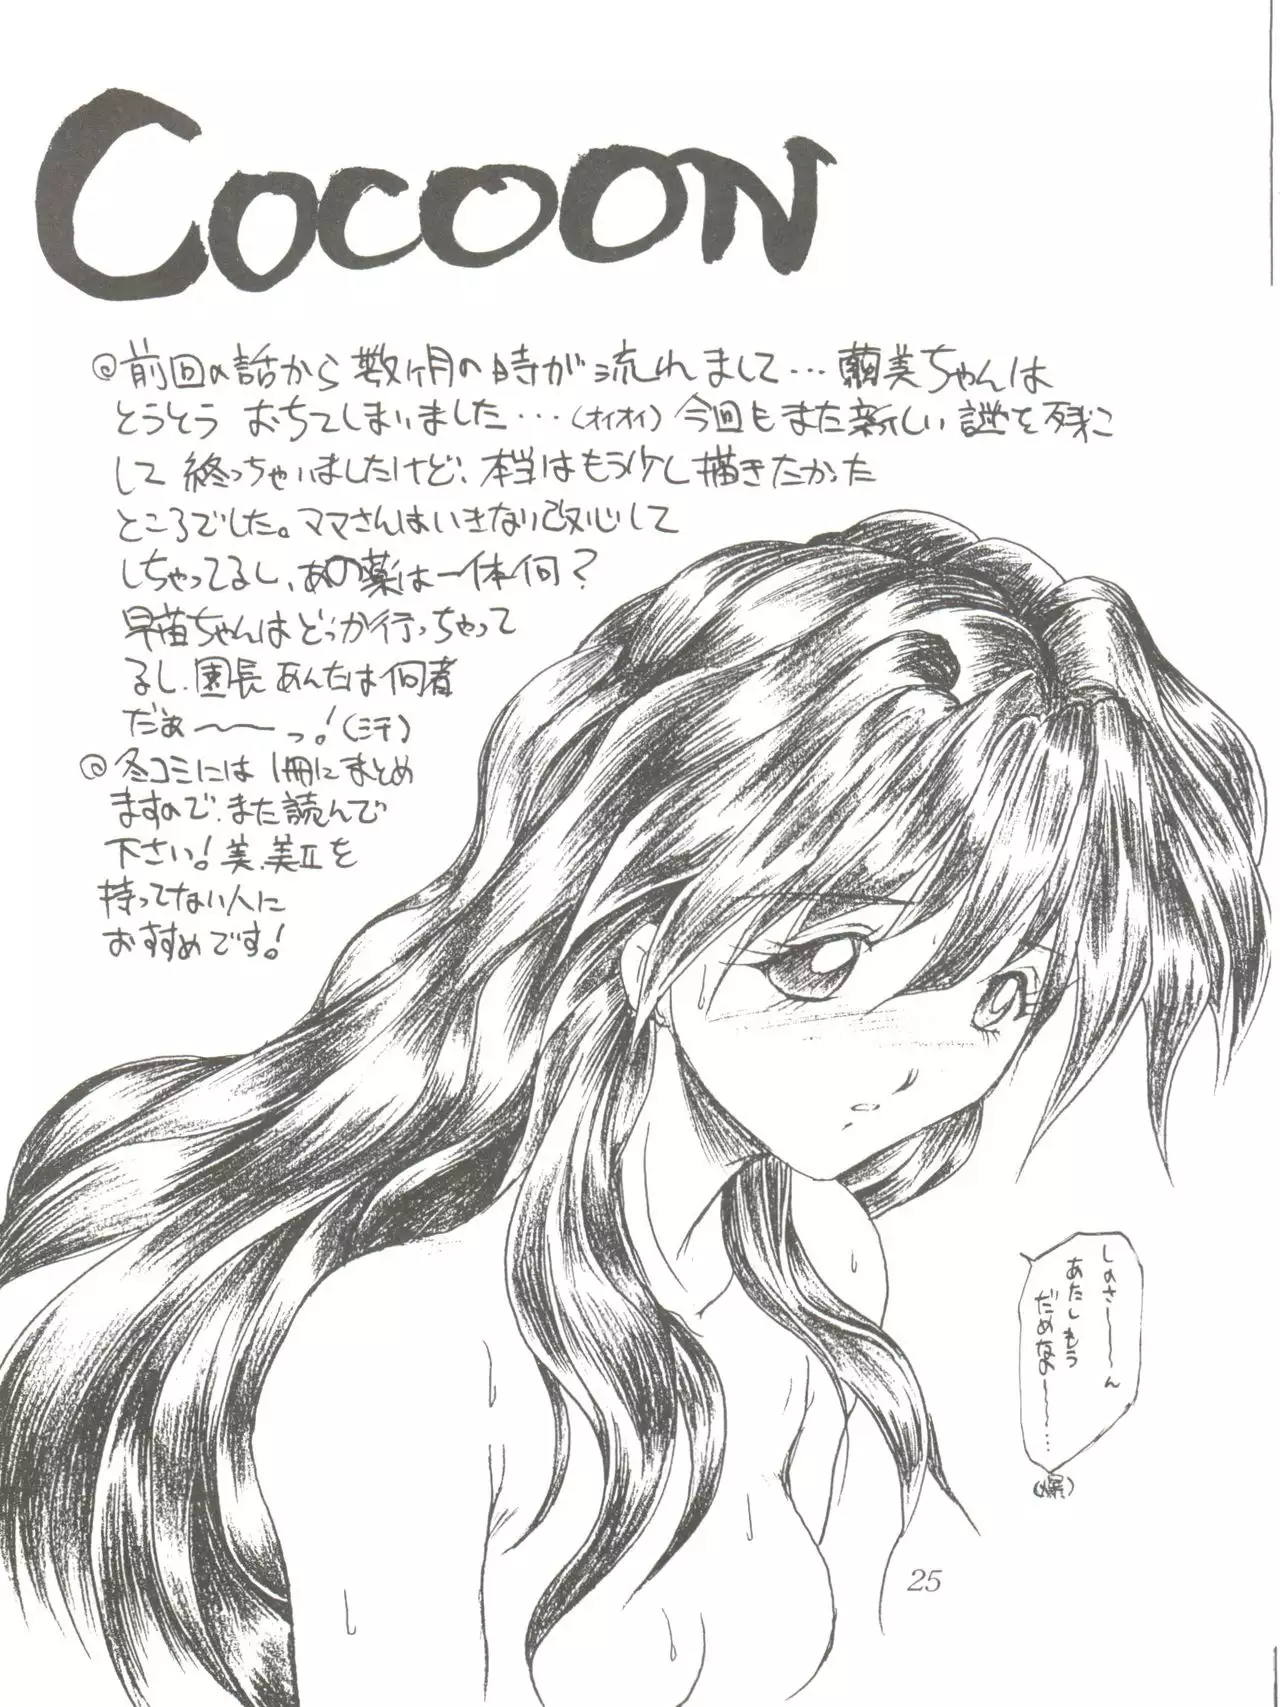 COCOON
@前回の話から数ヶ月の時が流れまして…繭美ちゃんは
とうとう おちてしまいました…(オイオイ) 今回もまた新しい謎を残こ
して 終っちゃいましたけど、本当はもう少し描きたかった
ところでした。ママさんはいきなり改心して
しちゃってるし、あの薬は一体何？
早苗ちゃんはどっか行っちゃって
るし、園長 あんたは何者
だぁ〜〜っ！(汗)
@冬コミには 1冊にまとめ
ますので、また読んで
下さい！美、美Ⅱを
持ってない人に
おすすめです！
しょさー〜〜ん
あたしもう
だめなのー〜〜…
(爆)
25